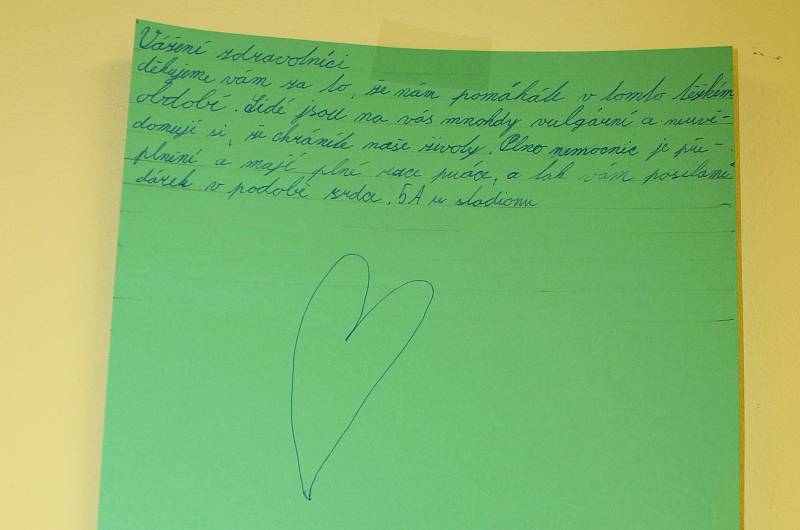 Vážení zdravotníci
děkujeme vám za to, že nám pomáháte v tomto těžkém
období. Lidé jsou na vás mnohdy vulgární a neuvě-
domují si, že chráníte naše životy. Plno nemocnic je pře-
plnění a mají plné ruce práce, a tak vám posíláme
dárek v podobě srdce. 5A u stadionu